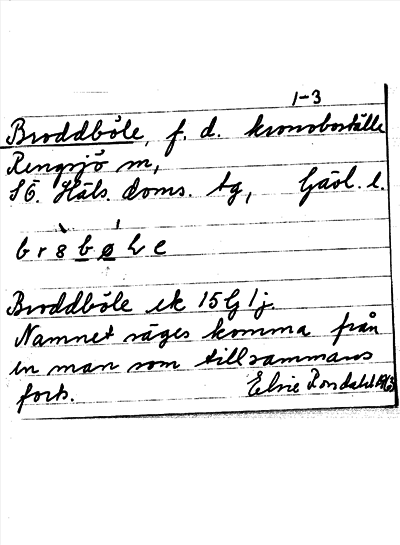 1-3
Broddböle, f. d. kronoboställe
Rengsjö sn,
SÖ. Häls. doms. tg, Gävl. l.
br8bøle
Broddböle ek 15 lj.
Namnet säges komma från
en man som tillsammans
forts. Elsie